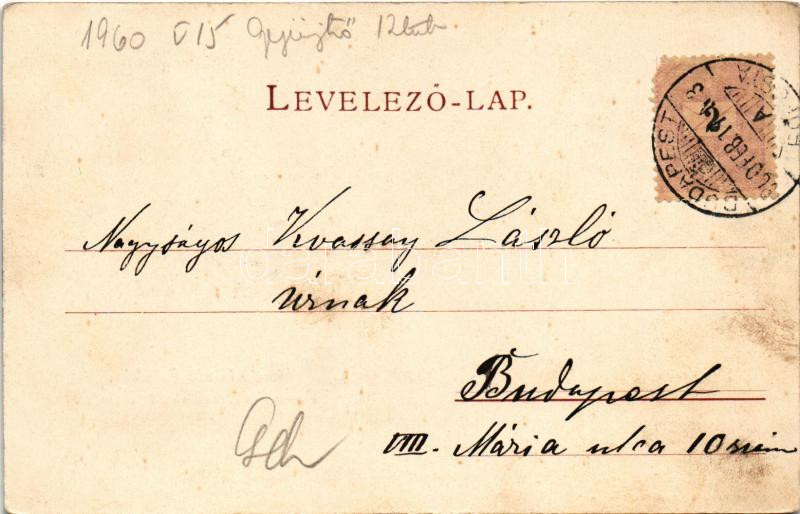 1960 V 15 Gyűjtő 12
LEVELEZŐ-LAP.
BUDAPEST
FEB. 19
Nagyságos Kvassay László
úrnak
Budapest
VIII. Mária utca 10 szám
darabanth